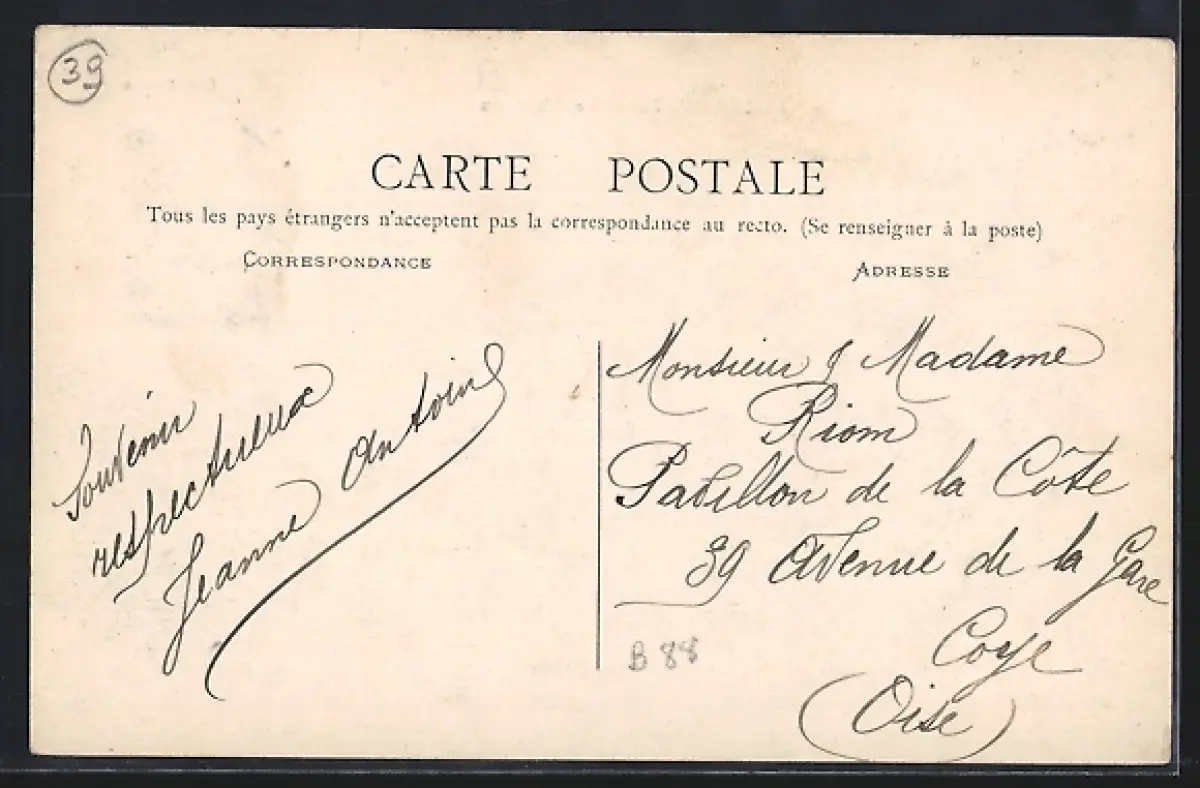 39
CARTE POSTALE
Tous les pays étrangers n'acceptent pas la correspondance au recto. (Se renseigner à la poste)
CORRESPONDANCE
ADRESSE
Souvenir
respectueux
Jeanne Antoine
Monsieur & Madame
Riom
Pavillon de la Côte
39 Avenue de la Gare
Coye
(Oise)
B 88